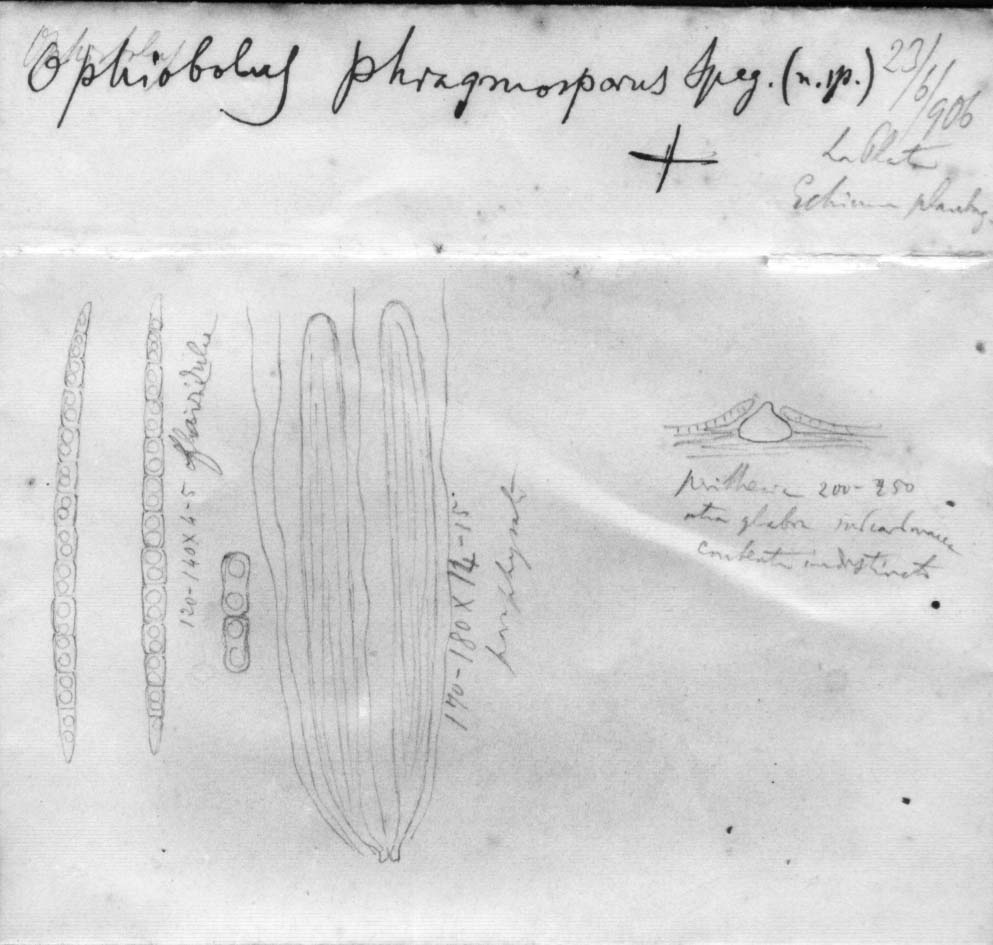 Ophiobolus phragmosporus Speg. (n. sp.)
23/6/906
La Plata
Echium plantag.
+
120-140 X 4-5
170-180 X 14-15
paraphysati
perithecia 200-250
atra glabra subcarbonacea
contextu indistincto